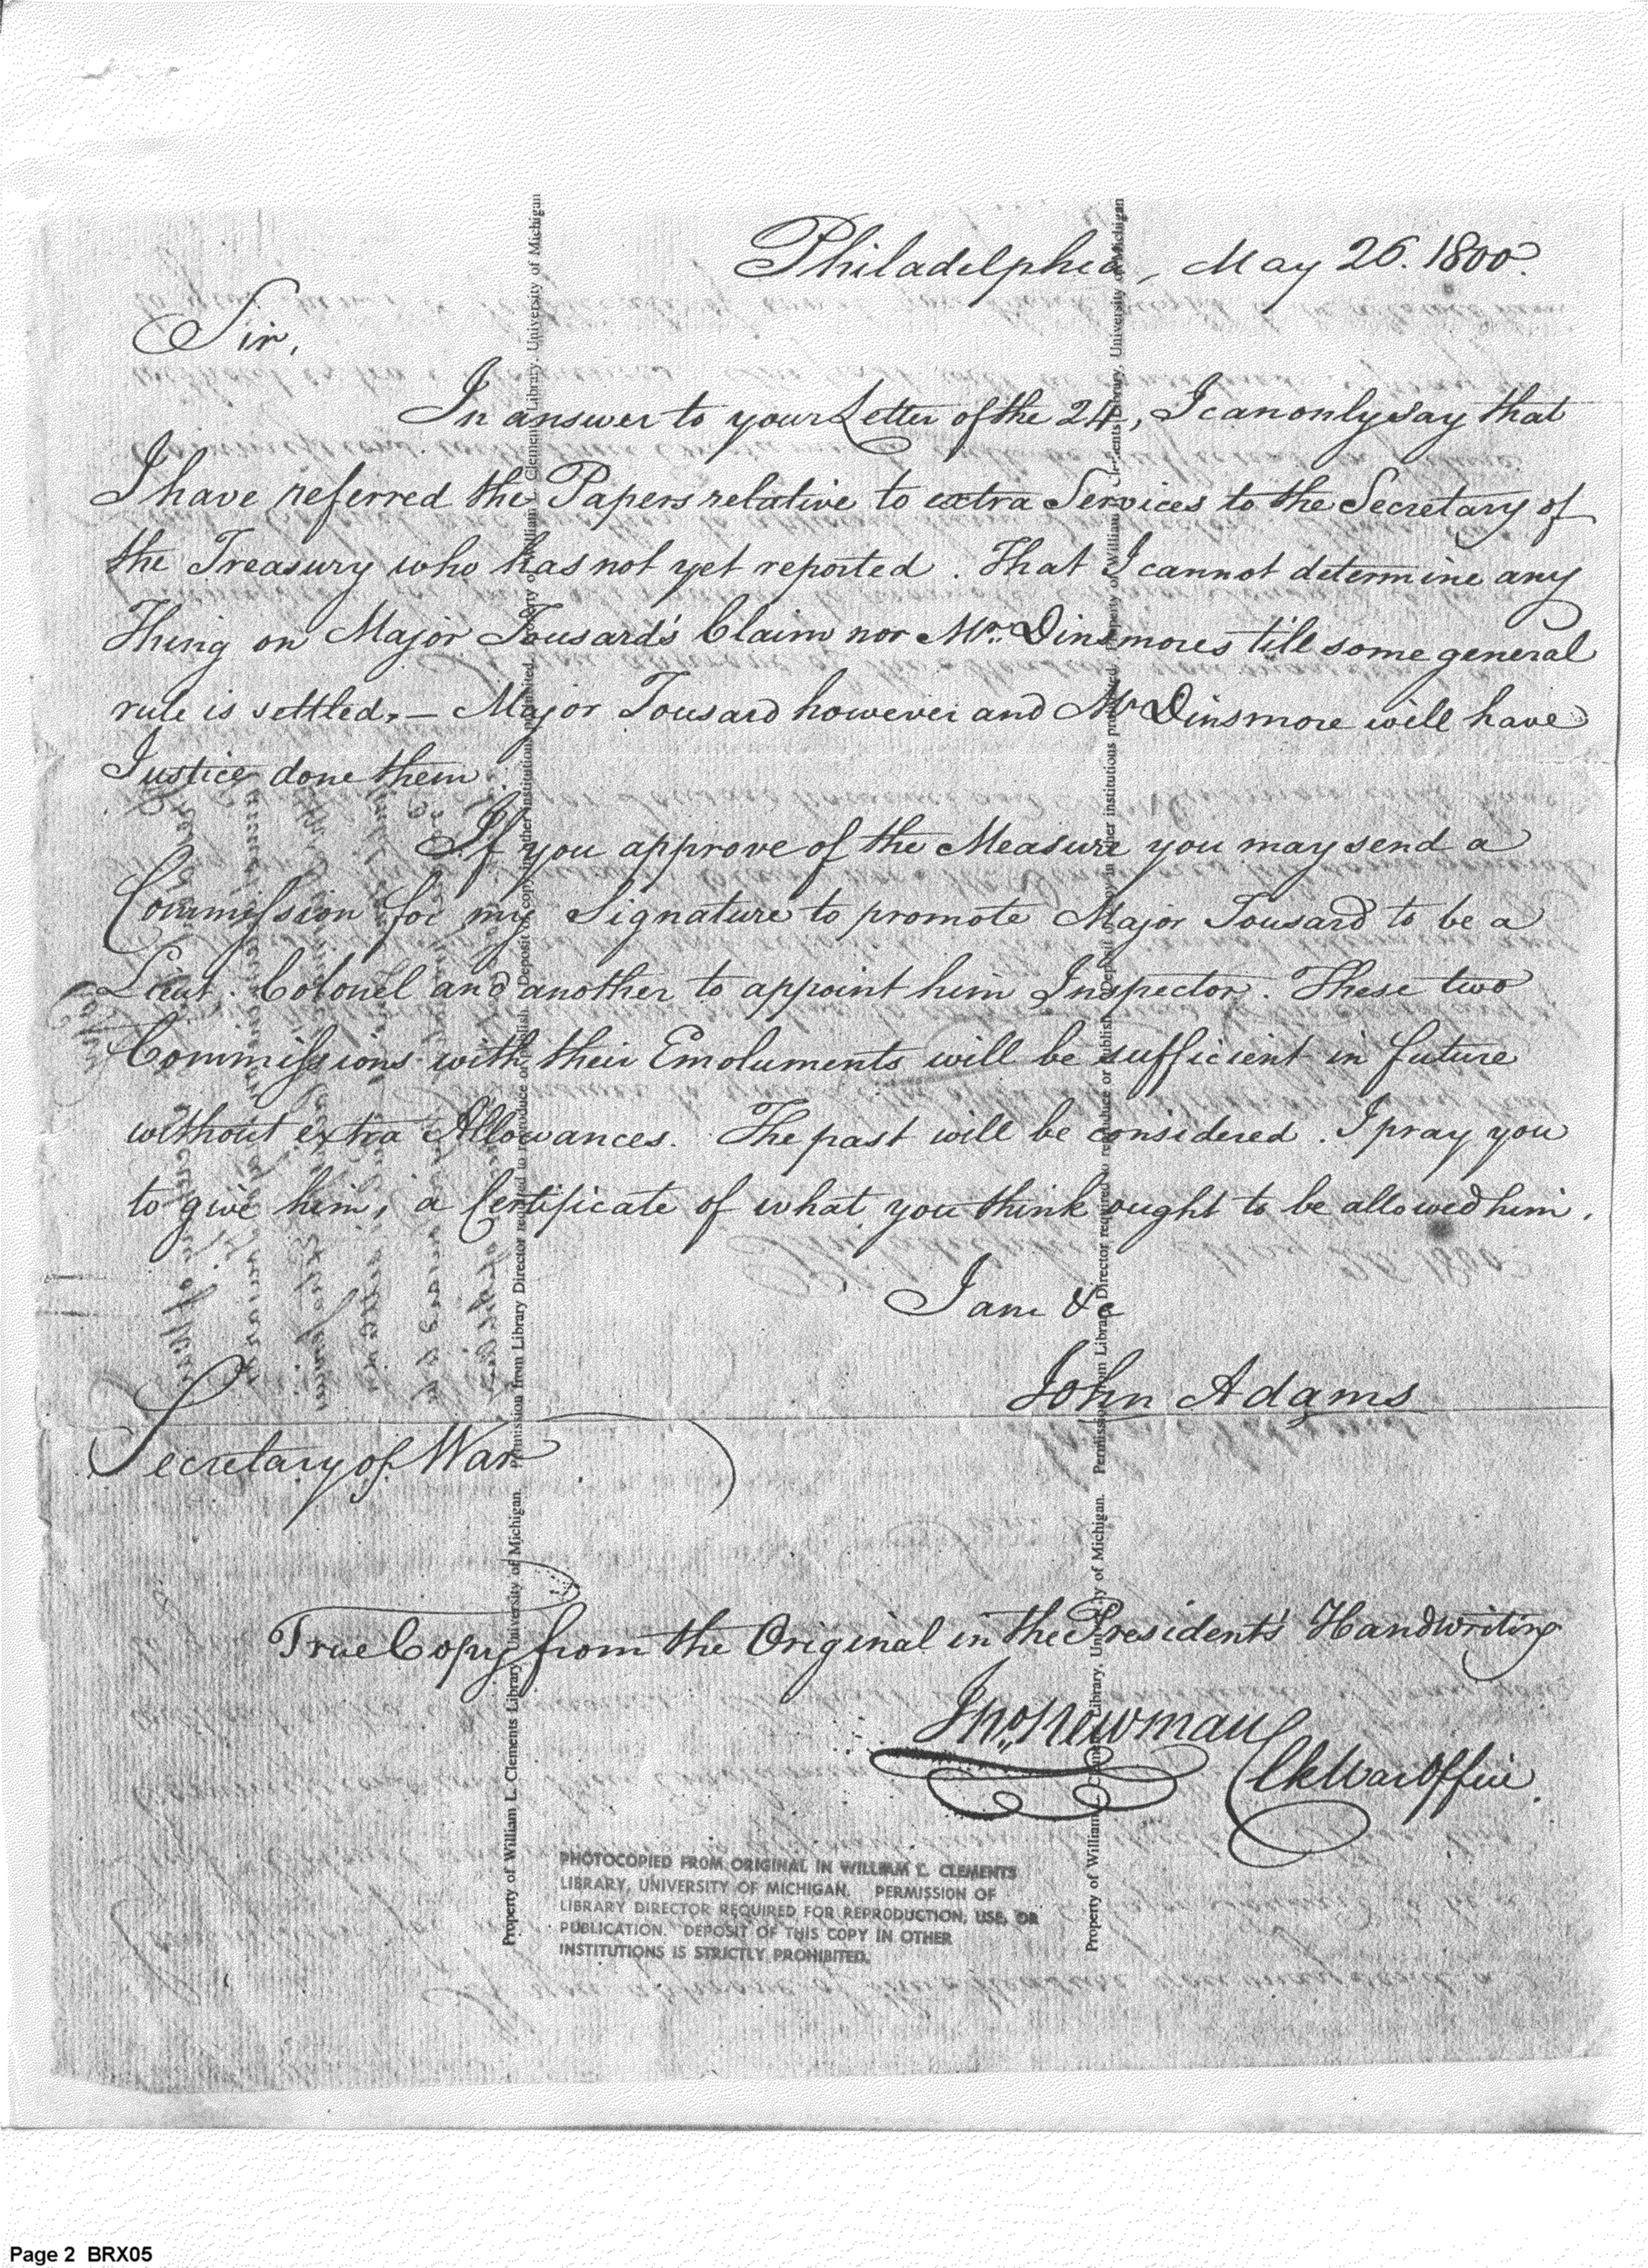 Philadelphia, May 26. 1800.
Sir,
In answer to your Letter of the 24, I can only say that
I have referred the Papers relative to extra Services to the Secretary of
the Treasury who has not yet reported. That I cannot determine any
Thing on Major Tousard's Claim nor Mr. Dinsmores till some general
rule is settled. — Major Tousard however and Mr Dinsmore will have
Justice done them.
If you approve of the Measure you may send a
Commission for my Signature to promote Major Tousard to be a
Lieut. Colonel and another to appoint him Inspector. These two
Commissions with their Emoluments will be sufficient in future
without extra Allowances. The past will be considered. I pray you
to give him, a Certificate of what you think ought to be allowed him.
I am &c
John Adams
Secretary of War
True Copy from the Original in the President's Handwriting
Jno. Newman
Clk War Office.
Property of William L. Clements Library, University of Michigan. Permission from Library Director required to reproduce or publish. Deposit of copy in other institutions prohibited. Property of William L. Clements Library, University of Michigan
Property of William L. Clements Library, University of Michigan. Permission from Library Director required to reproduce or publish. Deposit of copy in other institutions prohibited. Property of William L. Clements Library, University of Michigan
PHOTOCOPIED FROM ORIGINAL IN WILLIAM L. CLEMENTS
LIBRARY, UNIVERSITY OF MICHIGAN. PERMISSION OF
LIBRARY DIRECTOR REQUIRED FOR REPRODUCTION, USE, OR
PUBLICATION. DEPOSIT OF THIS COPY IN OTHER
INSTITUTIONS IS STRICTLY PROHIBITED.
Page 2 BRX05